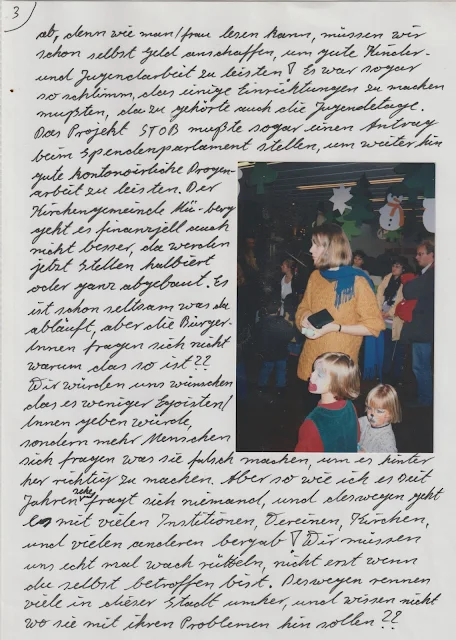 3
ab, denn wie man/frau lesen kann, müssen wir
schon selbst Geld anschaffen, um gute Kinder-
und Jugendarbeit zu leisten! Es war sogar
so schlimm, das einige Einrichtungen zu machen
mußten, da zu gehörte auch die Jugendetage.
Das Projekt STOB mußte sogar einen Antrag
beim Spendenparlament stellen, um weiter hin
gute kontonoirliche Drogen-
arbeit zu leisten. Der
Kirchengemeinde Mü-berg
geht es finanziell auch
nicht besser, da werden
jetzt Stellen halbiert
oder ganz abgebaut. Es
ist schon seltsam was da
abläuft, aber die Bürger-
Innen fragen sich nicht
warum das so ist??
Wir würden uns wünschen
das es weniger Egoisten/
Innen geben würde,
sondern mehr Menschen
sich fragen was sie falsch machen, um es hinter
her richtig zu machen. Aber so wie ich es seit
Jahren sehe fragt sich niemand, und deswegen geht
es mit vielen Institionen, Vereinen, Kirchen,
und vielen anderen bergab! Wir müssen
uns echt mal wach rütteln, nicht erst wenn
du selbst betroffen bist. Deswegen rennen
viele in dieser Stadt umher, und wissen nicht
wo sie mit ihren Problemen hin sollen??